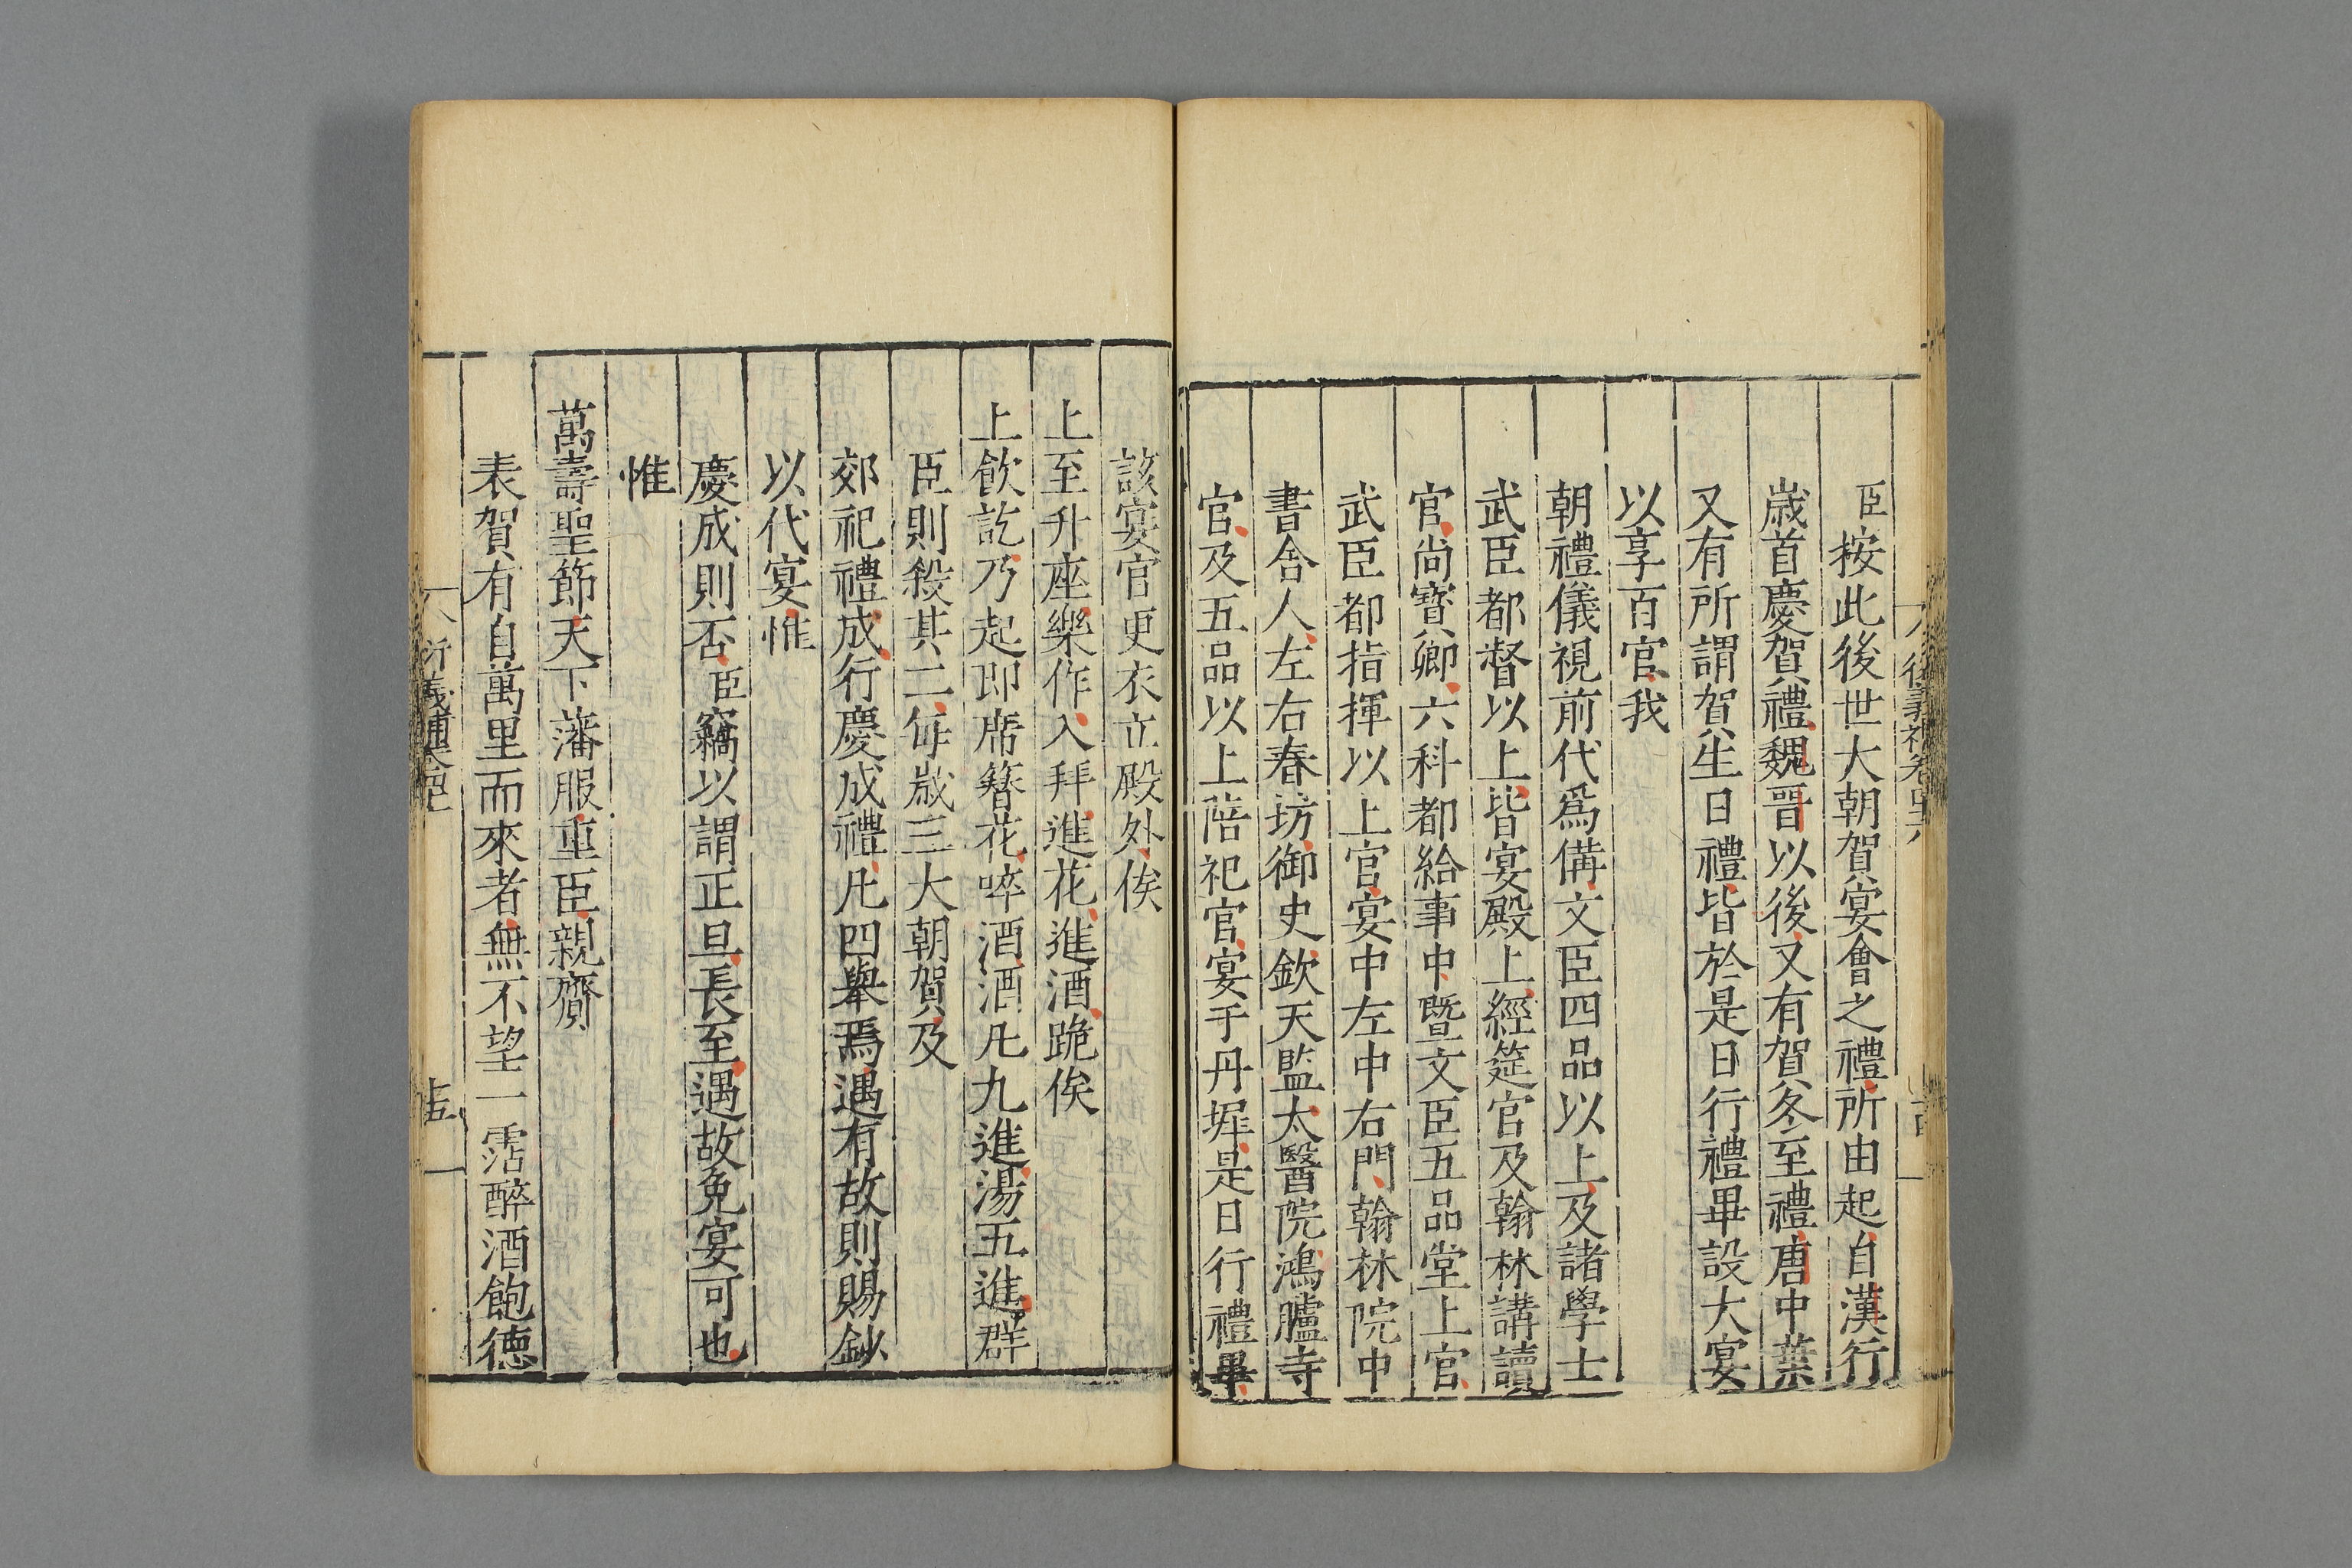 臣按此後世大朝賀宴會之禮所由起自漢行
歲首慶賀禮魏晋以後又有賀冬至禮唐中葉
又有所謂賀生日禮皆於是日行禮畢設大宴
以享百官我
朝禮儀視前代爲備文臣四品以上及諸學士
武臣都督以上皆宴殿上經筵官及翰林講讀
官尚寶卿六科都給事中暨文臣五品堂上官
武臣都指揮以上官宴中左中右門翰林院中
書舍人左右春坊御史欽天監太醫院鴻臚寺
官及五品以上陪祀官宴于丹墀是日行禮畢
該宴官更衣立殿外俟
上至升座樂作入拜進花進酒跪俟
上飲訖乃起即席簪花啐酒酒凡九進湯五進群
臣則殺其二每歲三大朝賀及
郊祀禮成行慶成禮凡四舉焉遇有故則賜鈔
以代宴惟
慶成則否臣竊以謂正旦長至遇故免宴可也
惟
萬壽聖節天下藩服重臣親齎
表賀有自萬里而來者無不望一霑醉酒飽德